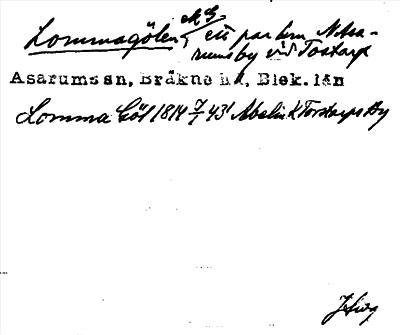 Lommagölen, ett par hm N Asa-
rums by vid Tostarp
Asarums sn, Bräkne hd, Blek. län
Lomma Göl 1814 7/1 43 Abelin K Torstarps By